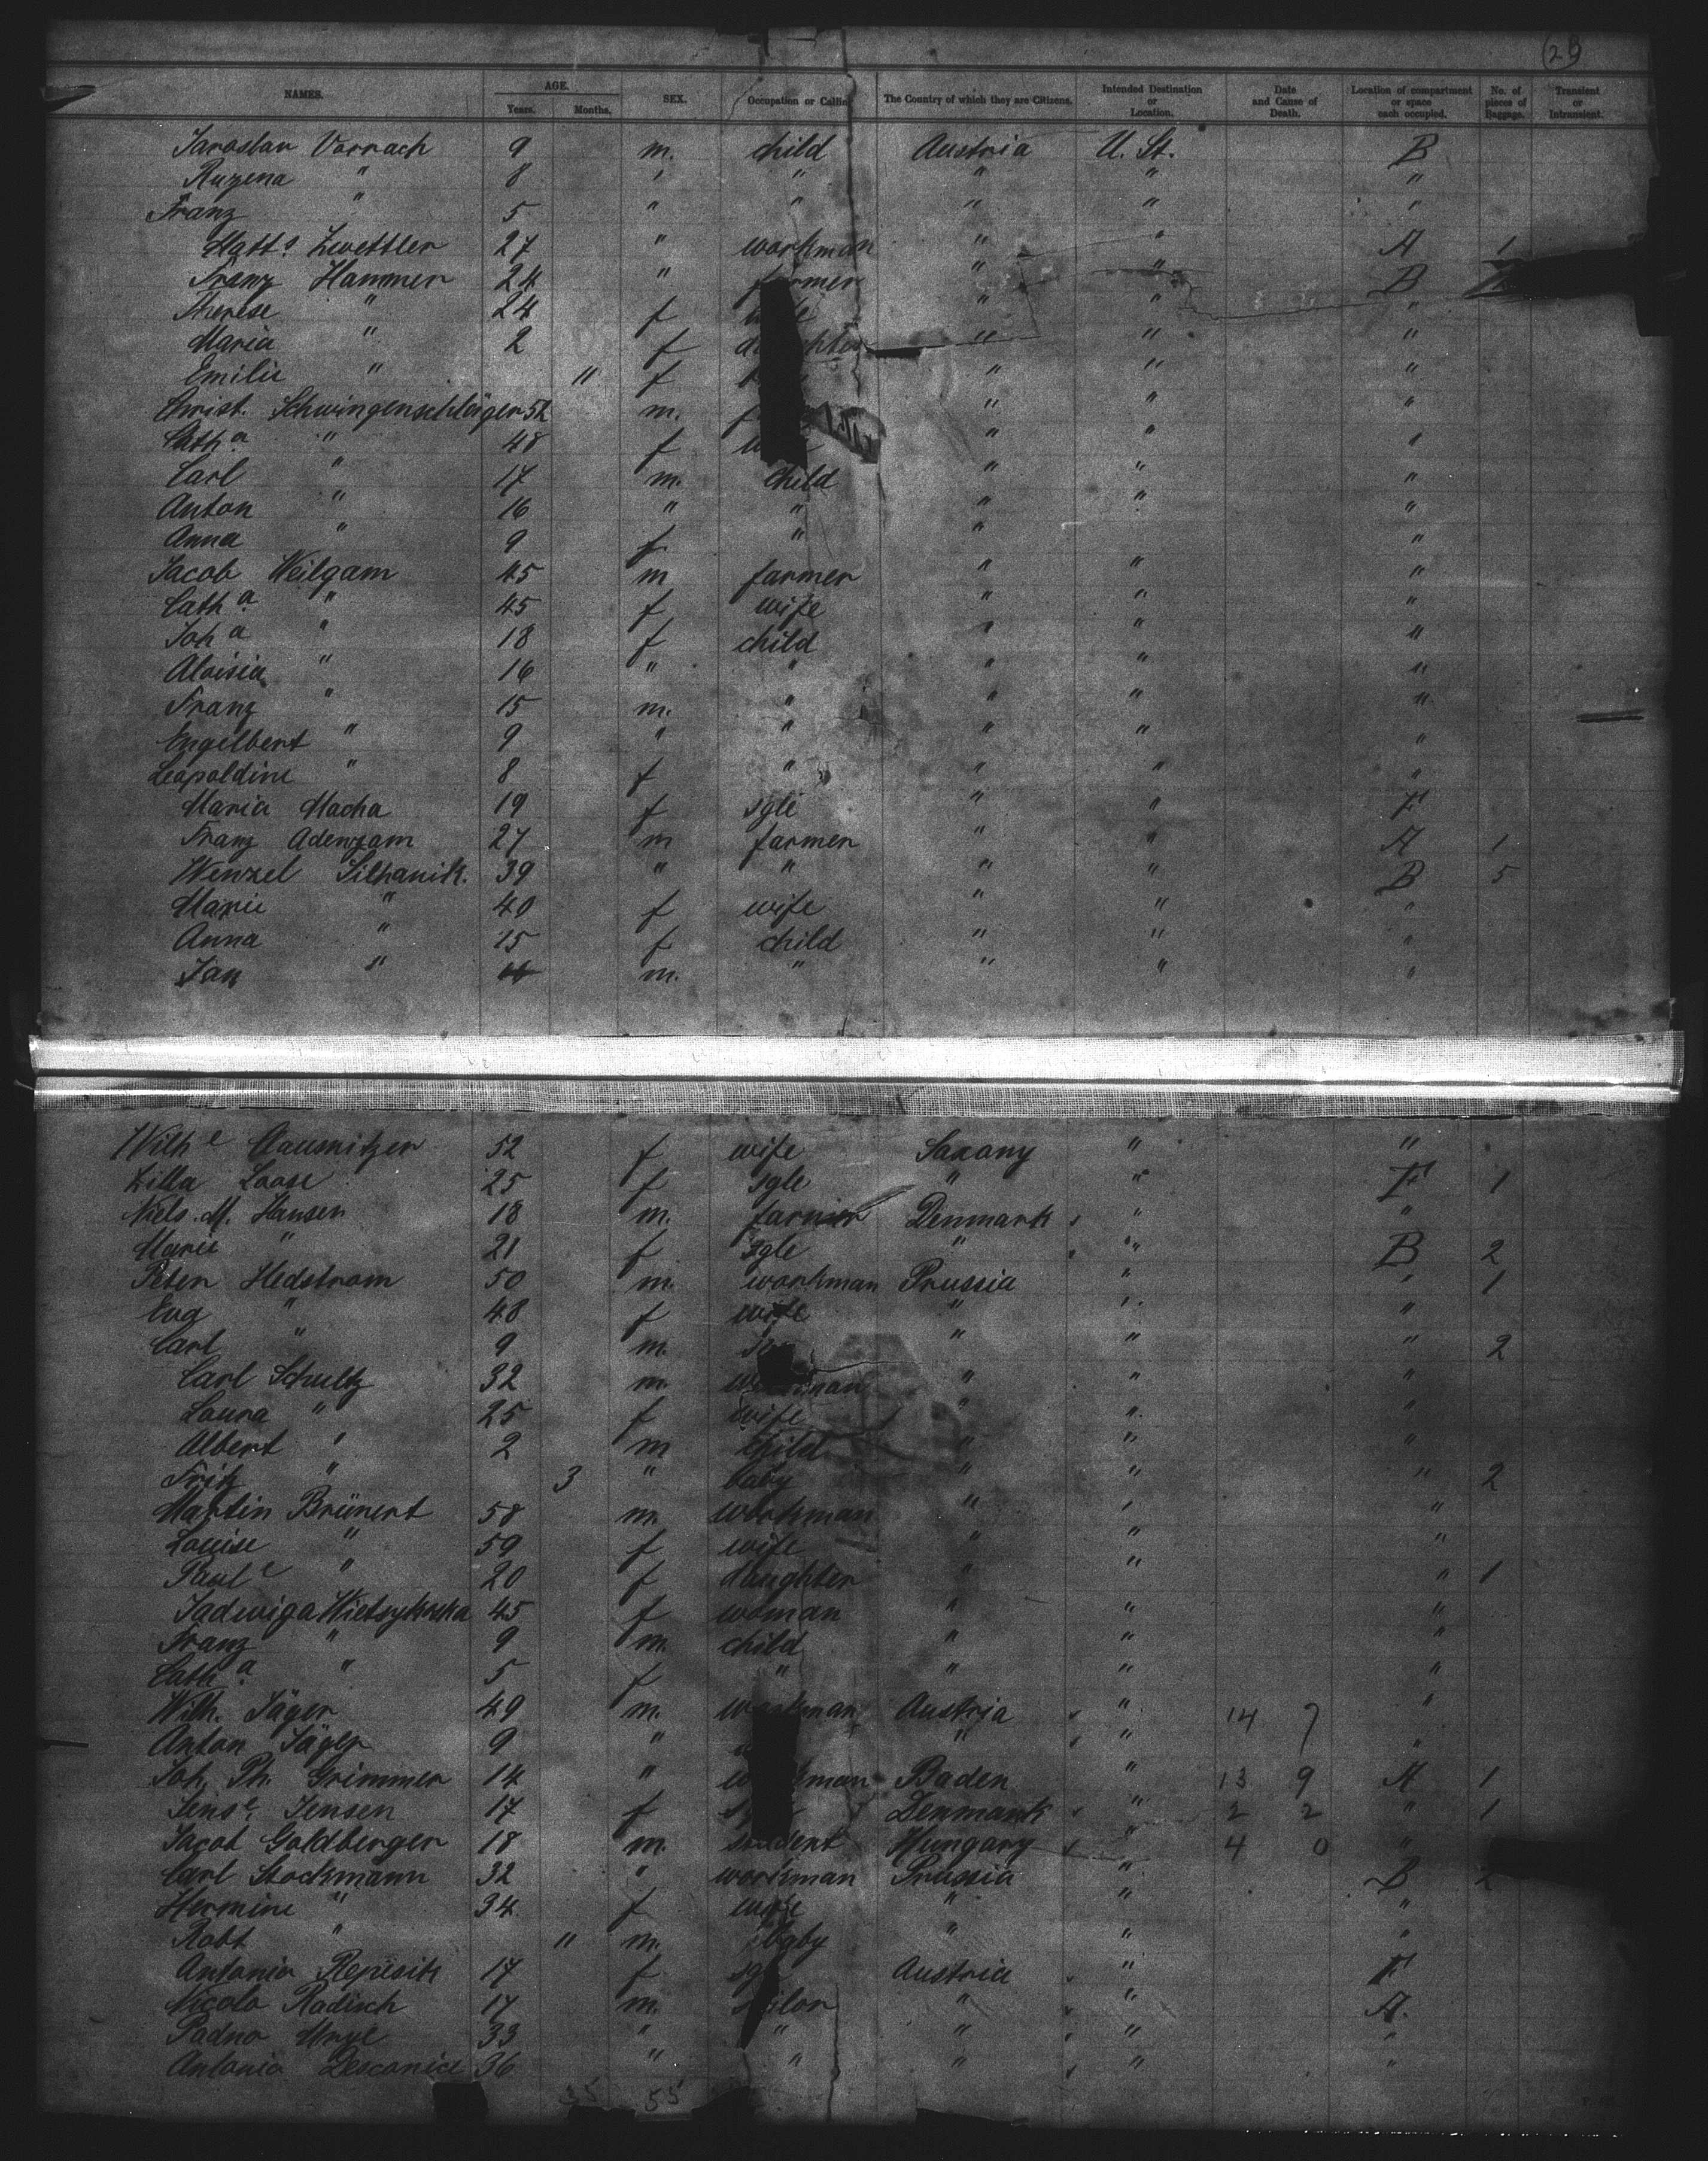 29
NAMES. AGE. Years. Months. SEX. Occupation or Callin The Country of which they are Citizens. Intended Destination or Location. Date and Cause of Death. Location of compartment or space each occupied. No. of pieces of Baggage. Transient or Intransient.
Jaroslav Vorrach 9 m. child Austria U. St. B
Ruzena " 8 " " " " "
Franz " 5 " " " " "
Matts. Zwettler 27 " workman " " A 1
Franz Hammer 24 " farmer " " B
Therese " 24 f " " "
Maria " 2 f " " "
Emilie " 11 f " " "
Christ. Schwingenschlöger 52 m. " " "
Catha " 48 f " " "
Carl " 17 m. child " " "
Anton " 16 " " " " "
Anna " 9 f. " " "
Jacob Weilgam 45 m farmer " " "
Catha " 45 f wife " " "
Joha " 18 f child " " "
Aloisia " 16 " " " " "
Franz " 15 m. " " " "
Engelbert " 9 " " " " "
Leopoldine " 8 f " " " "
Maria Macha 19 f sgle " " F
Franz Adenzam 27 m farmer " " A 1
Wenzel Silhanik. 39 " " " " B 5
Marie " 40 f wife " " "
Anna " 15 f child " " "
Jan " m. " " " "
Wilhe Clausnitzer 52 f wife Saxony " "
Zilla Loose 25 f sgle " " F 1
Niels. M. Hansen 18 m. farmer Denmark " "
Marie " 21 f sgle " " B 2
Peter Hedstrom 50 m. workman Prussia " " 1
Eva " 48 f wife " " "
Carl " 9 m. " " " 2
Carl Schultz 32 m workman " " "
Laura " 25 f wife " " "
Albert " 2 m child " " "
Fritz " 3 " baby " " " 2
Martin Brünert 58 m workman " " "
Louise " 59 f wife " " "
Paule " 20 f daughter " " " 1
Jadwiga 45 f woman " " "
Franz " 9 m. child " " "
Catha " 5 f " " " "
Wilh. Jäger 49 m. workman Austria " 14 7 "
Anton Jäger 9 " " " "
Joh. Ph. Grimmer 14 " workman Baden " 13 9 M 1
Jense. Jensen 17 f Denmark " 2 2 " 1
Jacob Goldberger 18 m. student Hungary " 4 0 "
Carl Stockmann 32 " workman Prussia " B 2
Hermine " 34 f wife " " "
Robt " 11 m. baby " " "
Antonia Repisik 17 f sgle Austria " F
Nicolo Radisch 17 m. " " A.
33 " " " " "
Antonio 36 " " " " "
35 55